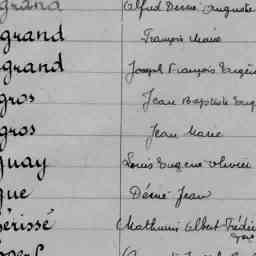 grand Alfred Désiré Auguste
grand François Marie
grand Joseph François Eugène
gros Jean Baptiste Eug
gros Jean Marie
guay Louis Eugène Olivier
gue Désiré Jean
érissé Mathurin Albert Frédéric